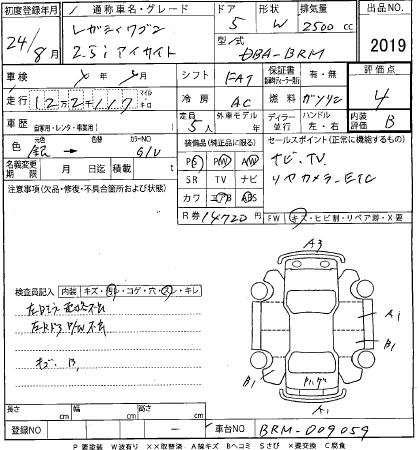 初度登録年月 通称車名・グレード ドア 形状 排気量 出品NO.
24/8月 レガシィワゴン 2.5i アイサイト 5 W 2500cc 2019
型/式 DBA-BRM
車検 年 月 シフト FAT 保証書 有・無 評価点 4
走行 12万2千117 マイル キロ 冷房 AC 燃料 ガソリン
車歴 自家用・レンタ・事業用( ) 定員 5人 外車モデル 年 ディーラー 並行 ハンドル 左・右 内装評価 B
色 元色 銀 色替 カラーNO G1U
装備品(純正品に限る) セールスポイント(正常に機能するもの)
名義変更期限 月 日迄 積載 t
PS PW AW
SR TV ナビ
カワ エアB ABS
ナビ、TV
リヤカメラ、ETC
注意事項(欠品・修復・不具合箇所および状態)
R券 14720円 FW キズ・ヒビ割・リペア跡・X要
検査員記入 内装 キズ・汚レ・コゲ・穴・スレ・キレ
キズ・B,
A3
A1
B1
B1
A1
長さ cm 幅 cm 高さ cm
登録NO ー 車台NO BRM-009059
P 要塗装 W波有り ××取替済 A線キズ Bヘコミ Sさび ×要交換 C腐食